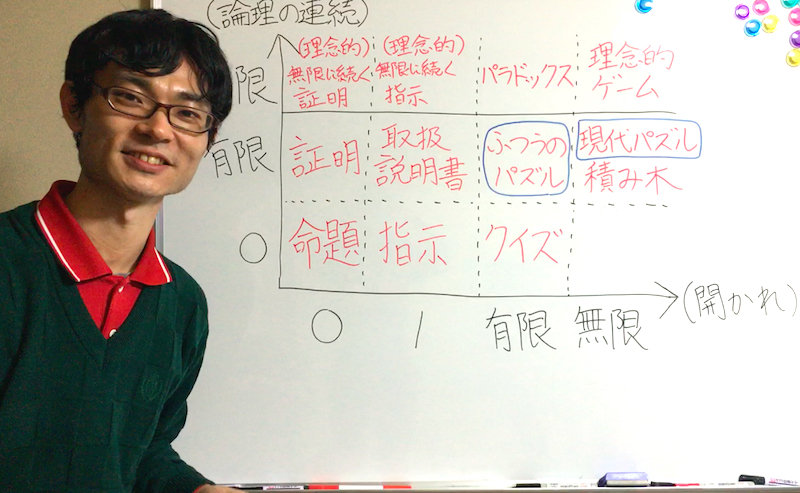 (論理の連続)
限
(理念的)
無限に続く
証明
(理念的)
無限に続く
指示
パラドックス
理念的
ゲーム
有限
証明
取扱
説明書
ふつうの
パズル
現代パズル
積み木
○
命題
指示
クイズ
○
1
有限
無限
(開かれ)